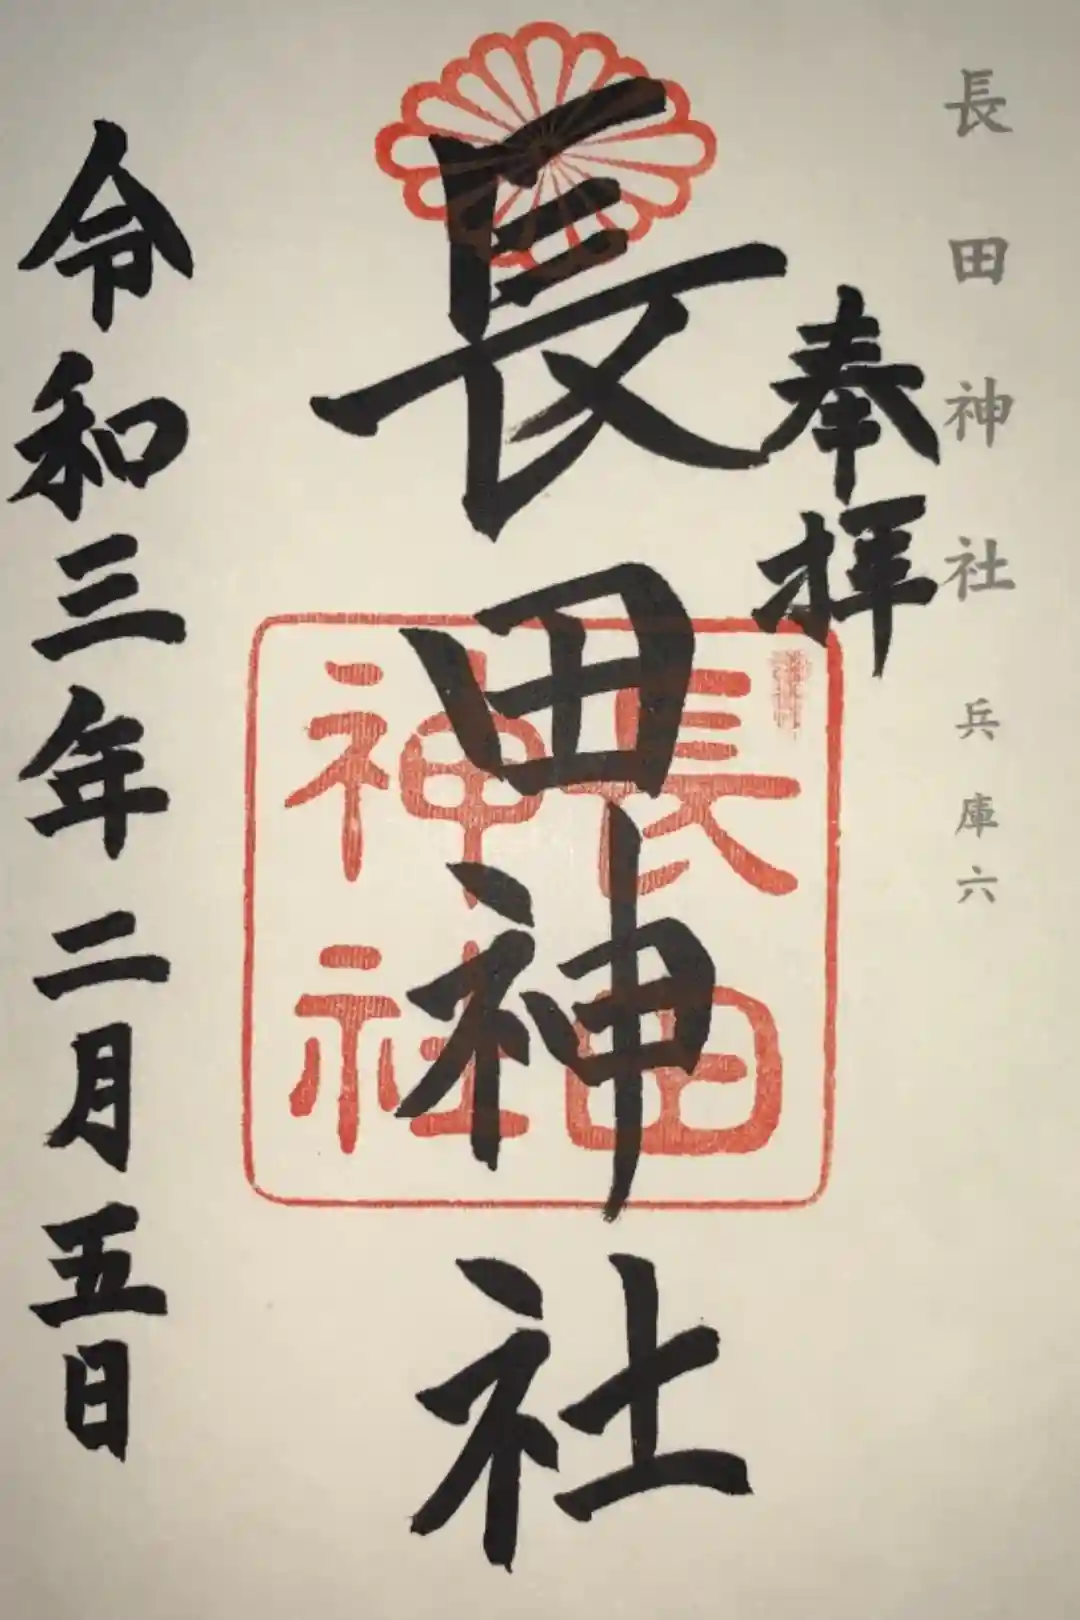 長田神社 兵庫六
奉拝
長田神社
長田神社
令和三年二月五日